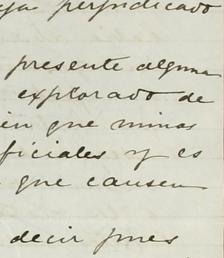 ya perjudicado
presente alguna
explorado de
ien que minas
ficiales y es
que causen
decir pues